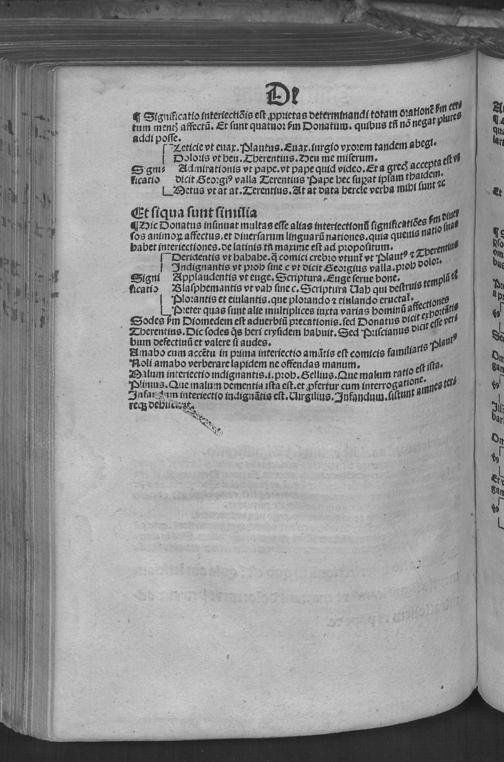 De
¶ Significatio interiectiõis est ꝓprietas determinandi totam orationẽ ẞm cer
tum mentꝭ affectũ. Et sunt quatuor ẞm Donatum. quibus tñ nõ negat plures
addi posse.
Leticie vt euax. Plautus. Euax. iurgio vxorem tandem abegi.
Doloris vt heu. Therentius. Heu me miserum.
Signi- Admirationis vt pape. vt pape quid video. Et a grecꝭ accepta est vṫ
ficatio dicit Georgiꝰ valla Terentius Pape hec supat ipsam thaidem.
Metus vt at at. Terentius. At at data hercle verba mihi sunt ⁊c
Et siqua sunt similia
¶ Hic Donatus insinuat multas esse alias interiectionũ significatiões ẞm diuer
sos animoꝝ affectus. et diuersarum linguarũ nationes. quia queuis natio suas
habet interiectiones. de latinis tñ maxime est ad propositum.
Deridentis vt hahahe. ꝗ̃ comici crebro vtunt̃ vt Plautꝰ ⁊ Therentius
Indignantis vt proh siue c vt dicit Georgius valla. proh dolor.
Signi Applaudentis vt euge. Scriptura. Euge serue bone.
ficatio Blasphemantis vt vah siue c. Scriptura Uah qui destruis templũ ⁊c
Plorantis et eiulantis. que plorando ⁊ eiulando eructat̃.
Preter quas sunt alie multiplices iuxta varias hominũ affectiones
Sodes ẞm Diomedem est aduerbiũ precationis. sed Donatus dicit exhortãtis
Therentius. Dic sodes ꝗ̃s heri crysidem habuit. Sed Priscianus dicit esse ver
bum defectiuũ et valere si audes.
Amabo cum accẽtu in prima interiectio amãtis est comicis familiaris Plautꝰ
Noli amabo verberare lapidem ne offendas manum.
Malum interiectio indignantis. i. proh. Gellius. Que malum ratio est ista.
Plinius. Que malum dementia ista est. et ꝓfertur cum interrogatione.
Infandum interiectio indignãtis est. Uirgilius. Infandum. sistunt amnes ter